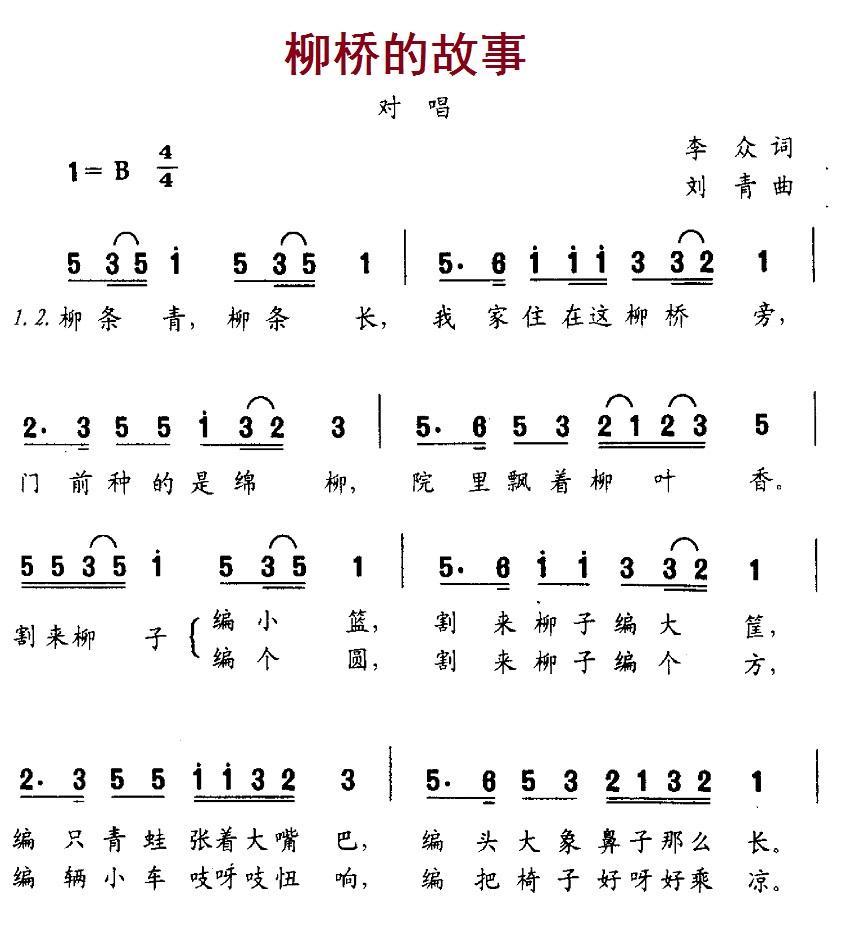 柳桥的故事
对 唱
1= B 4/4
李 众 词
刘 青 曲
5 3 5 i 5 3 5 1 | 5. 6 i i i 3 3 2 1 |
1. 2. 柳 条 青, 柳 条 长, 我 家 住 在 这 柳 桥 旁,
2. 3 5 5 i 3 2 3 | 5. 6 5 3 2 1 2 3 5 |
门 前 种 的 是 绵 柳, 院 里 飘 着 柳 叶 香。
5 5 3 5 i 5 3 5 1 | 5. 6 i i 3 3 2 1 |
割 来 柳 子 { 编 小 篮, 割 来 柳 子 编 大 筐,
编 个 圆, 割 来 柳 子 编 个 方,
2. 3 5 5 i i 3 2 3 | 5. 6 5 3 2 1 3 2 1 |
编 只 青 蛙 张 着 大 嘴 巴, 编 头 大 象 鼻 子 那 么 长。
编 辆 小 车 吱 呀 吱 忸 响, 编 把 椅 子 好 呀 好 乘 凉。